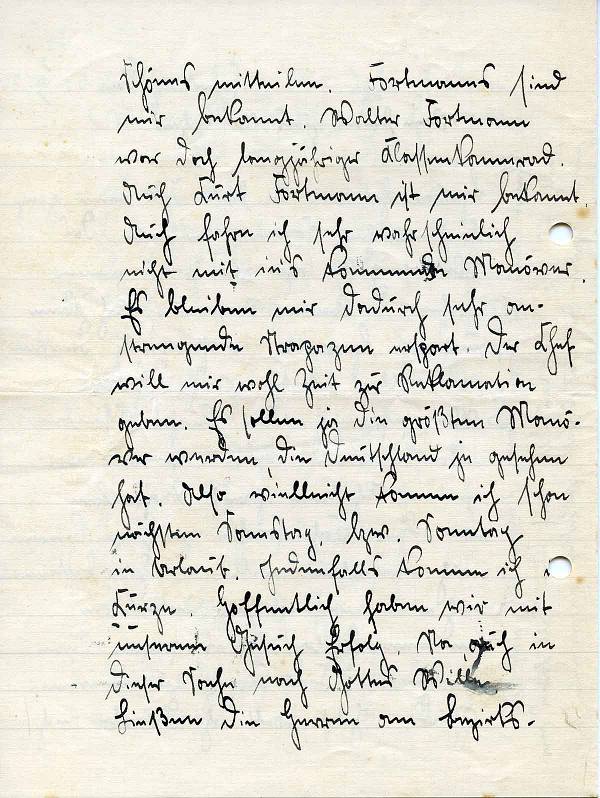 Schönes mitteilen. Fortmanns sind
mir bekannt. Walter Fortmann
war doch langjähriger Klassenkamerad.
Auch Kurt Fortmann ist mir bekannt.
Auch fahre ich sehr wahrscheinlich
nicht mit in's kommende Manöver.
Es bleiben mir dadurch sehr an-
strengende Strapazen erspart. Der Chef
will mir wohl Zeit zur Reklamation
geben. Es sollen ja die größten Manö-
ver werden, die Deutschland je gesehen
hat. Also vielleicht komme ich schon
nächsten Samstag, bzw. Sonntag
in Urlaub. Jedenfalls komme ich
Kürze. Hoffentlich haben wir mit
unserem Gesuch Erfolg. Na auch in
dieser Sache nach Gottes Willen
die Herren am Bezirks-